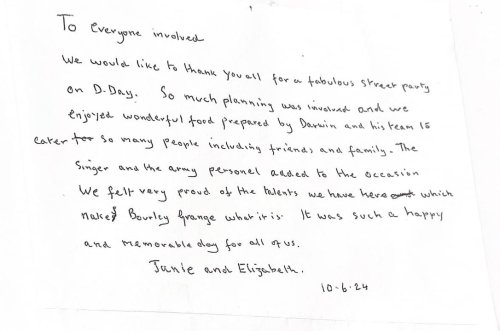 To Everyone involved
We would like to thank you all for a fabulous street party
on D.Day. So much planning was involved and we
enjoyed wonderful food prepared by Darwin and his team to
cater for so many people including friends and family. The
singer and the army personel added to the occasion
We felt very proud of the talents we have here which
makes Bourley Grange what it is. It was such a happy
and memorable day for all of us.
Janie and Elizabeth.
10-6-24